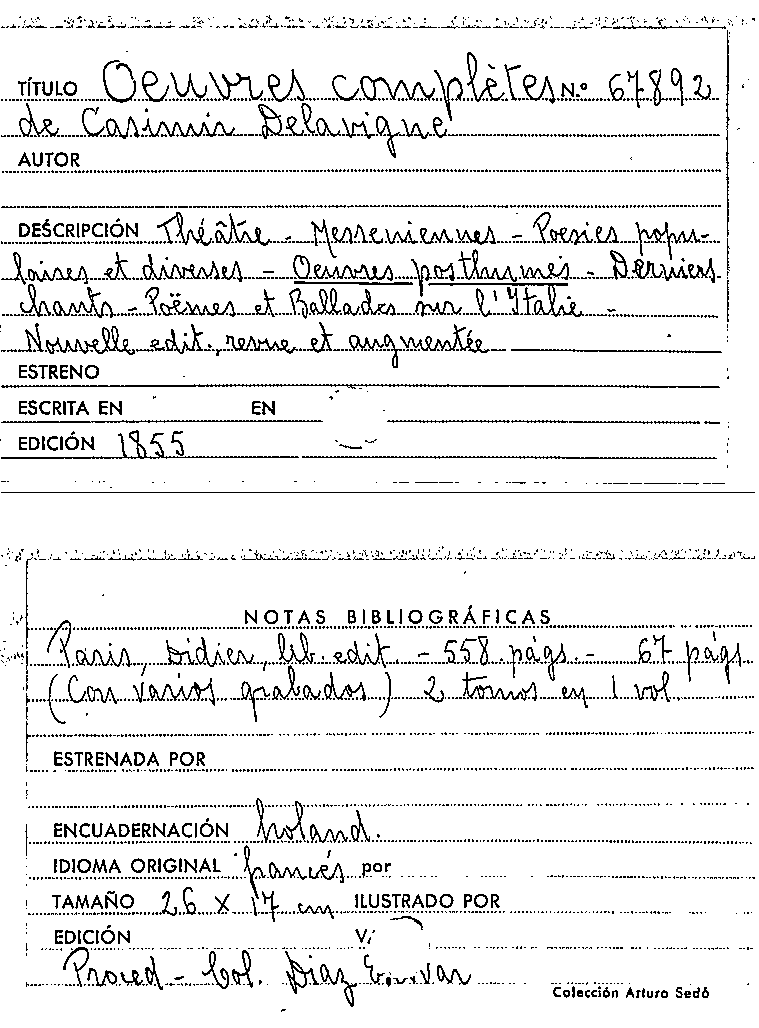 TÍTULO Oeuvres complètes N.º 67892
de Casimir Delavigne
AUTOR
DESCRIPCIÓN Théâtre - Messeniennes - Poesies popu-
laires et diverses - Oeuvres posthumes - Derniers
chants - Poëmes et Ballades sur l'Italie -
Nouvelle edit., revue et augmentée
ESTRENO
ESCRITA EN EN
EDICIÓN 1855
NOTAS BIBLIOGRÁFICAS
Paris, Didier, lib. edit. - 558 págs. - 67 págs
(Con varios grabados) 2 tomos en 1 vol.
ESTRENADA POR
ENCUADERNACIÓN holand.
IDIOMA ORIGINAL francés por
TAMAÑO 26 x 17 cm ILUSTRADO POR
EDICIÓN V.
Proced - Col. Diaz
Colección Arturo Sedó